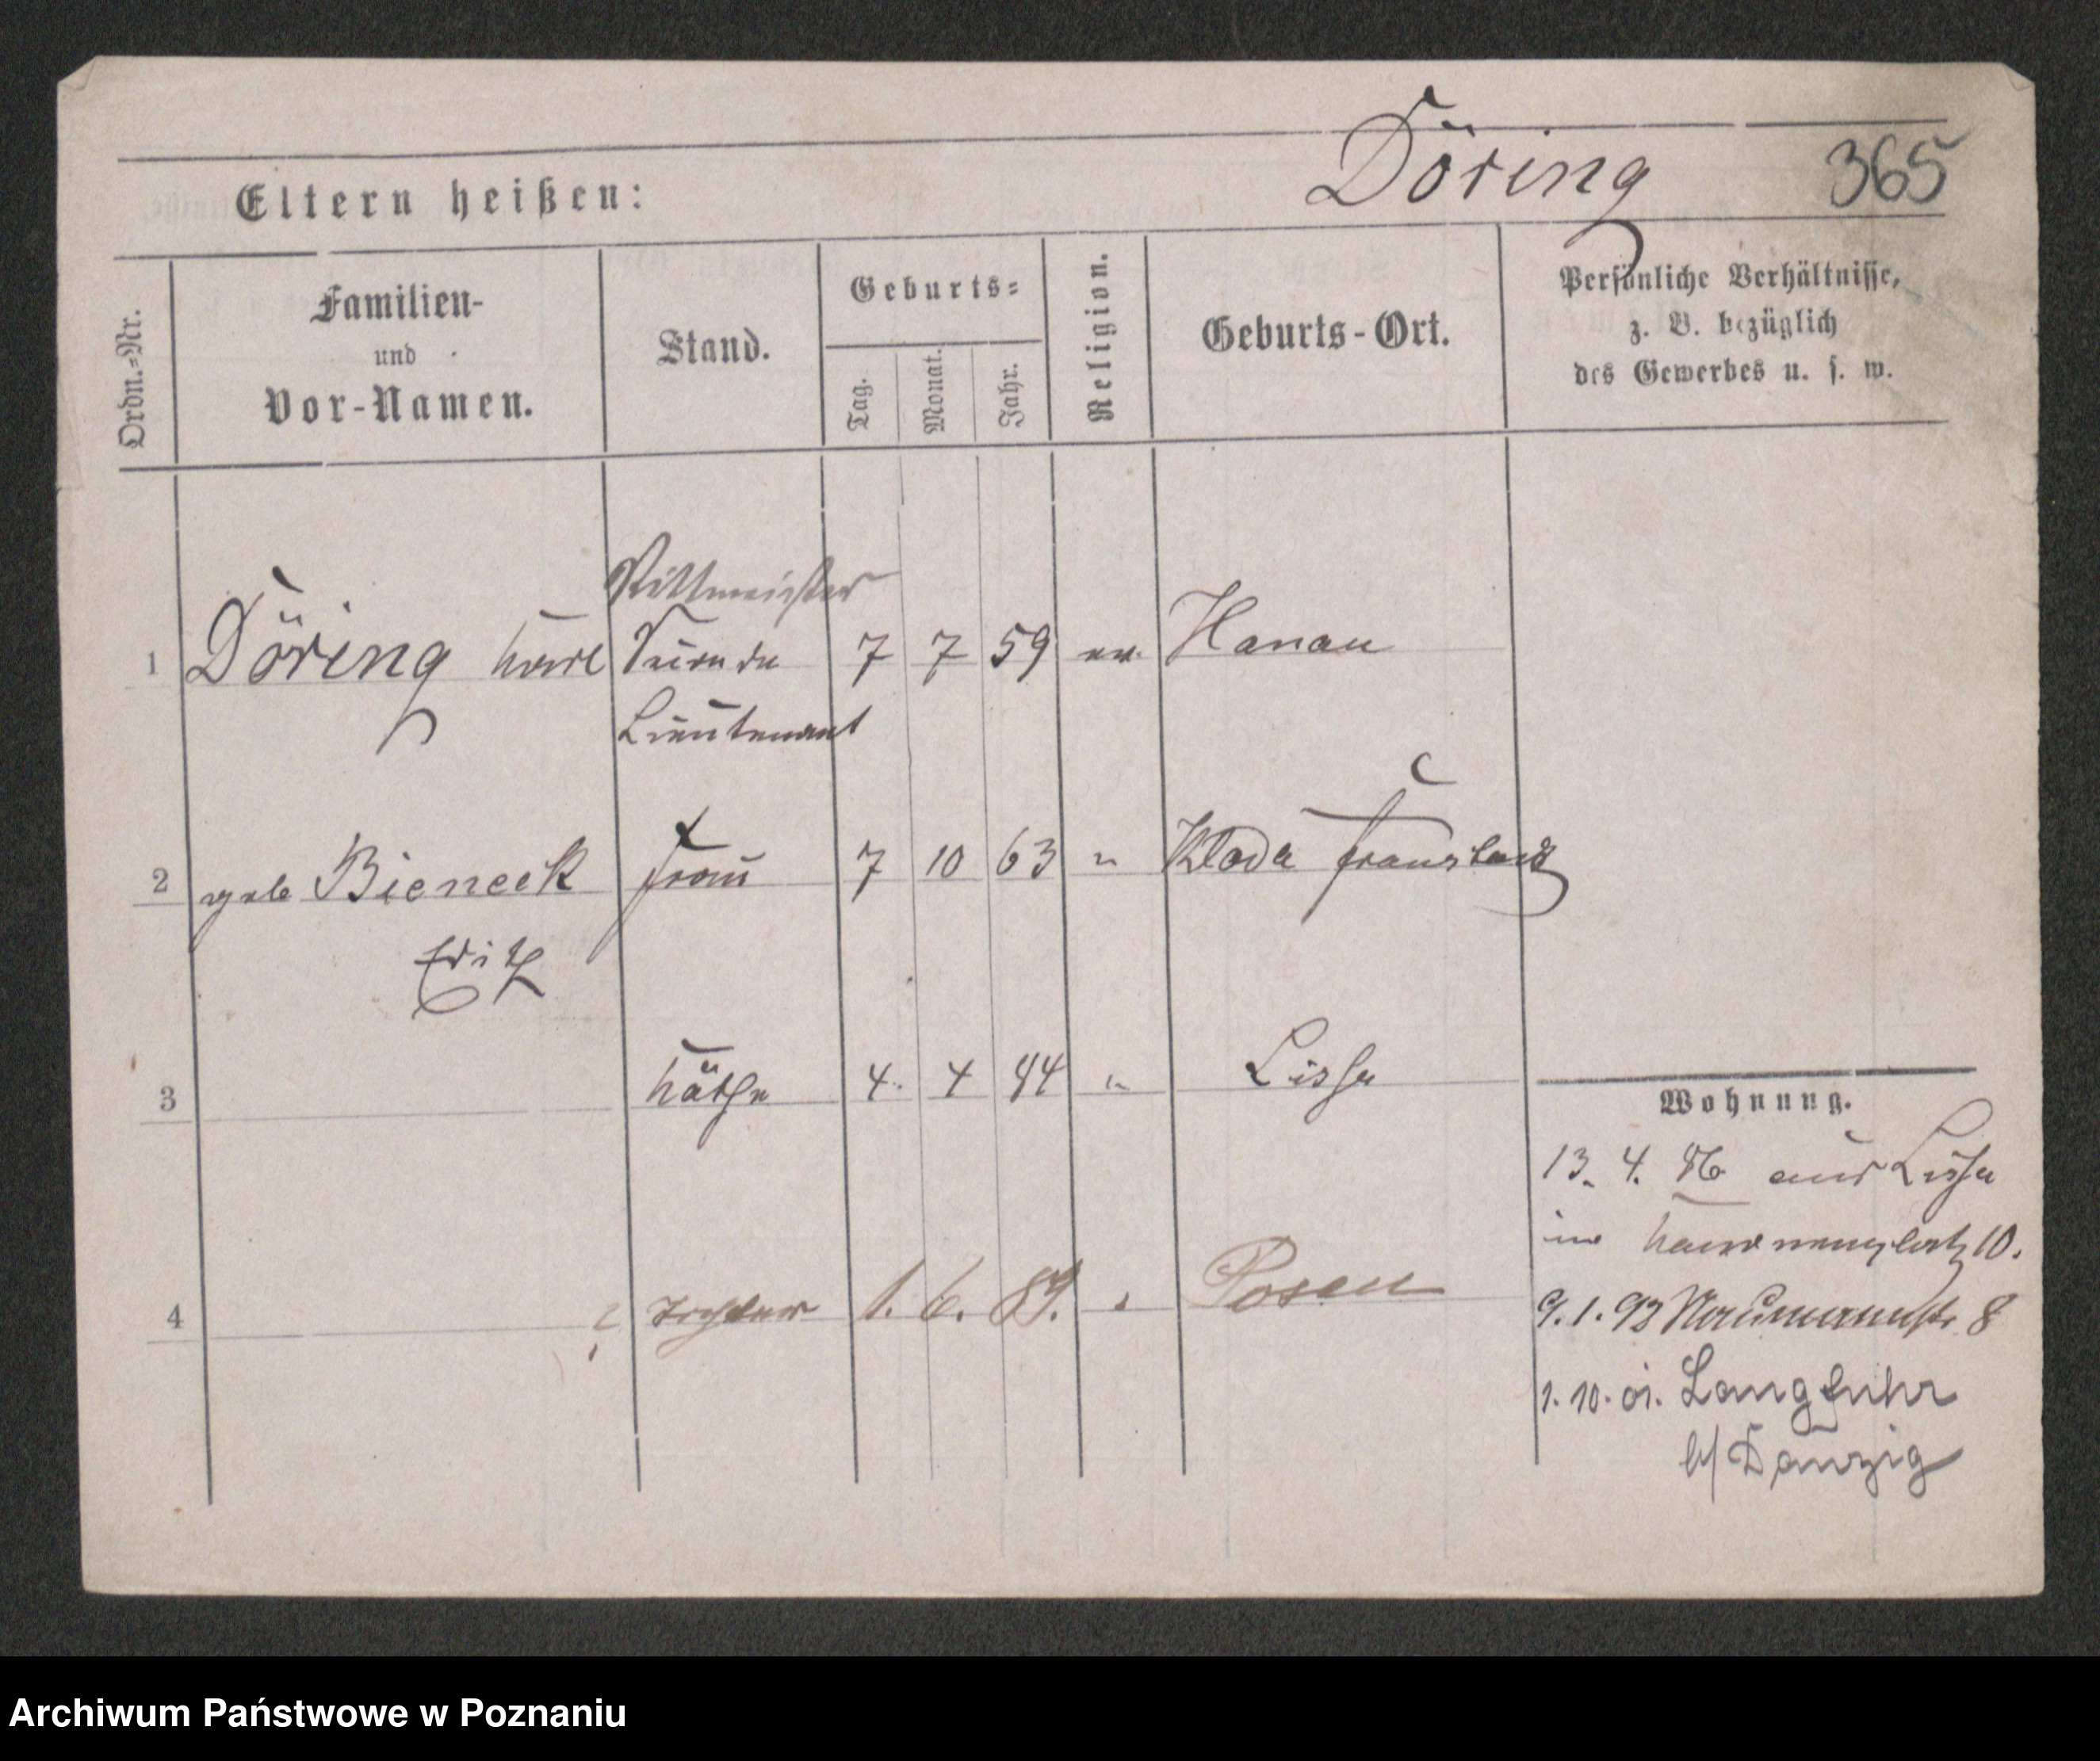 Döring 365
Eltern heißen:
Ordn.=Nr.
Familien-
und
Vor-Namen.
Stand.
Geburts=
Tag.
Monat.
Jahr.
Religion.
Geburts-Ort.
Persönliche Verhältnisse,
z. B. bezüglich
des Gewerbes u. s. w.
Rittmeister
1 Döring Karl 7 7 59 ev. Hanau
Lieutenant
2 geb Bieneck Frau 7 10 63 " Kloda Fraustadt
3 Käthe 4. 4 84 " Lissa
4 1. 6. 89. " Posen
Wohnung.
13. 4. 86 aus Lissa
10.
9. 1. 93 Naumannstr 8
1. 10. 01. Langfuhr
b/ Danzig
Archiwum Państwowe w Poznaniu